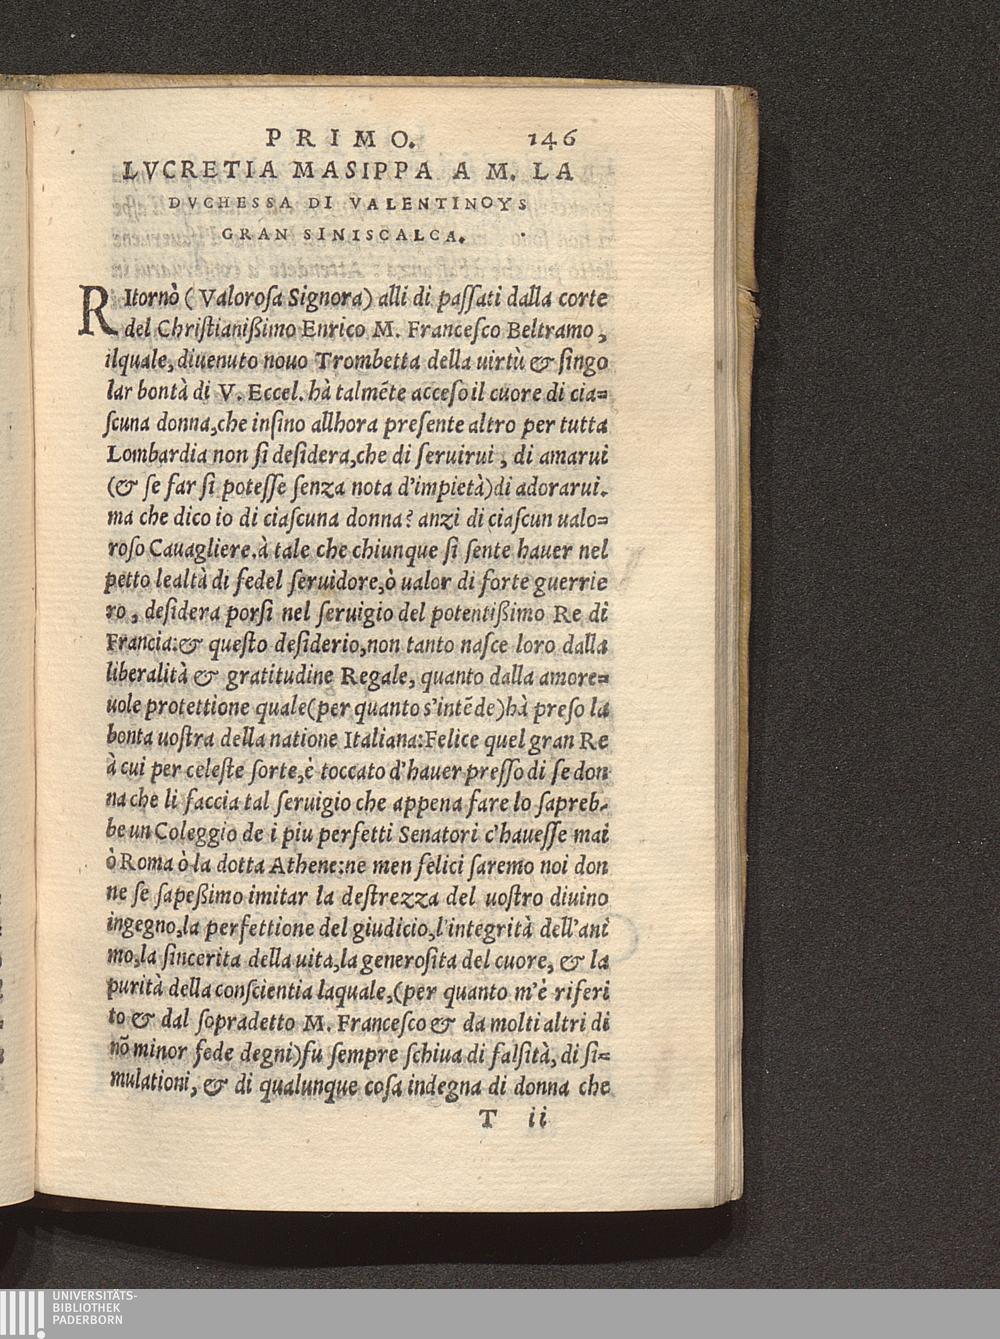 PRIMO. 146
LVCRETIA MASIPPA A M. LA
DVCHESSA DI VALENTINOYS
GRAN SINISCALCA.
RItornò (Valorosa Signora) alli dì passati dalla corte
del Christianißimo Enrico M. Francesco Beltramo,
ilquale, diuenuto nouo Trombetta della uirtù & singo
lar bontà di V. Eccel. hà talmēte acceso il cuore di cia=
scuna donna, che insino allhora presente altro per tutta
Lombardia non si desidera, che di seruirui, di amarui
(& se far si potesse senza nota d'impietà) di adorarui.
ma che dico io di ciascuna donna? anzi di ciascun ualo=
roso Cauagliere. à tale che chiunque si sente hauer nel
petto lealtà di fedel seruidore, ò ualor di forte guerrie
ro, desidera porsi nel seruigio del potentißimo Re di
Francia: & questo desiderio, non tanto nasce loro dalla
liberalità & gratitudine Regale, quanto dalla amore=
uole protettione quale (per quanto s'intēde) hà preso la
bonta uostra della natione Italiana: Felice quel gran Re
à cui per celeste sorte, è toccato d'hauer presso di se don
na che li faccia tal seruigio che appena fare lo sapreb-
be un Coleggio de i piu perfetti Senatori c'hauesse mai
ò Roma ò la dotta Athene: ne men felici saremo noi don
ne se sapeßimo imitar la destrezza del uostro diuino
ingegno, la perfettione del giudicio, l'integrità dell'ani
mo, la sincerita della uita, la generosita del cuore, & la
purità della conscientia laquale, (per quanto m'è riferi
to & dal sopradetto M. Francesco & da molti altri di
nō minor fede degni) fu sempre schiua di falsità, di si=
mulationi, & di qualunque cosa indegna di donna che
T ii
UNIVERSITÄTS-
BIBLIOTHEK
PADERBORN